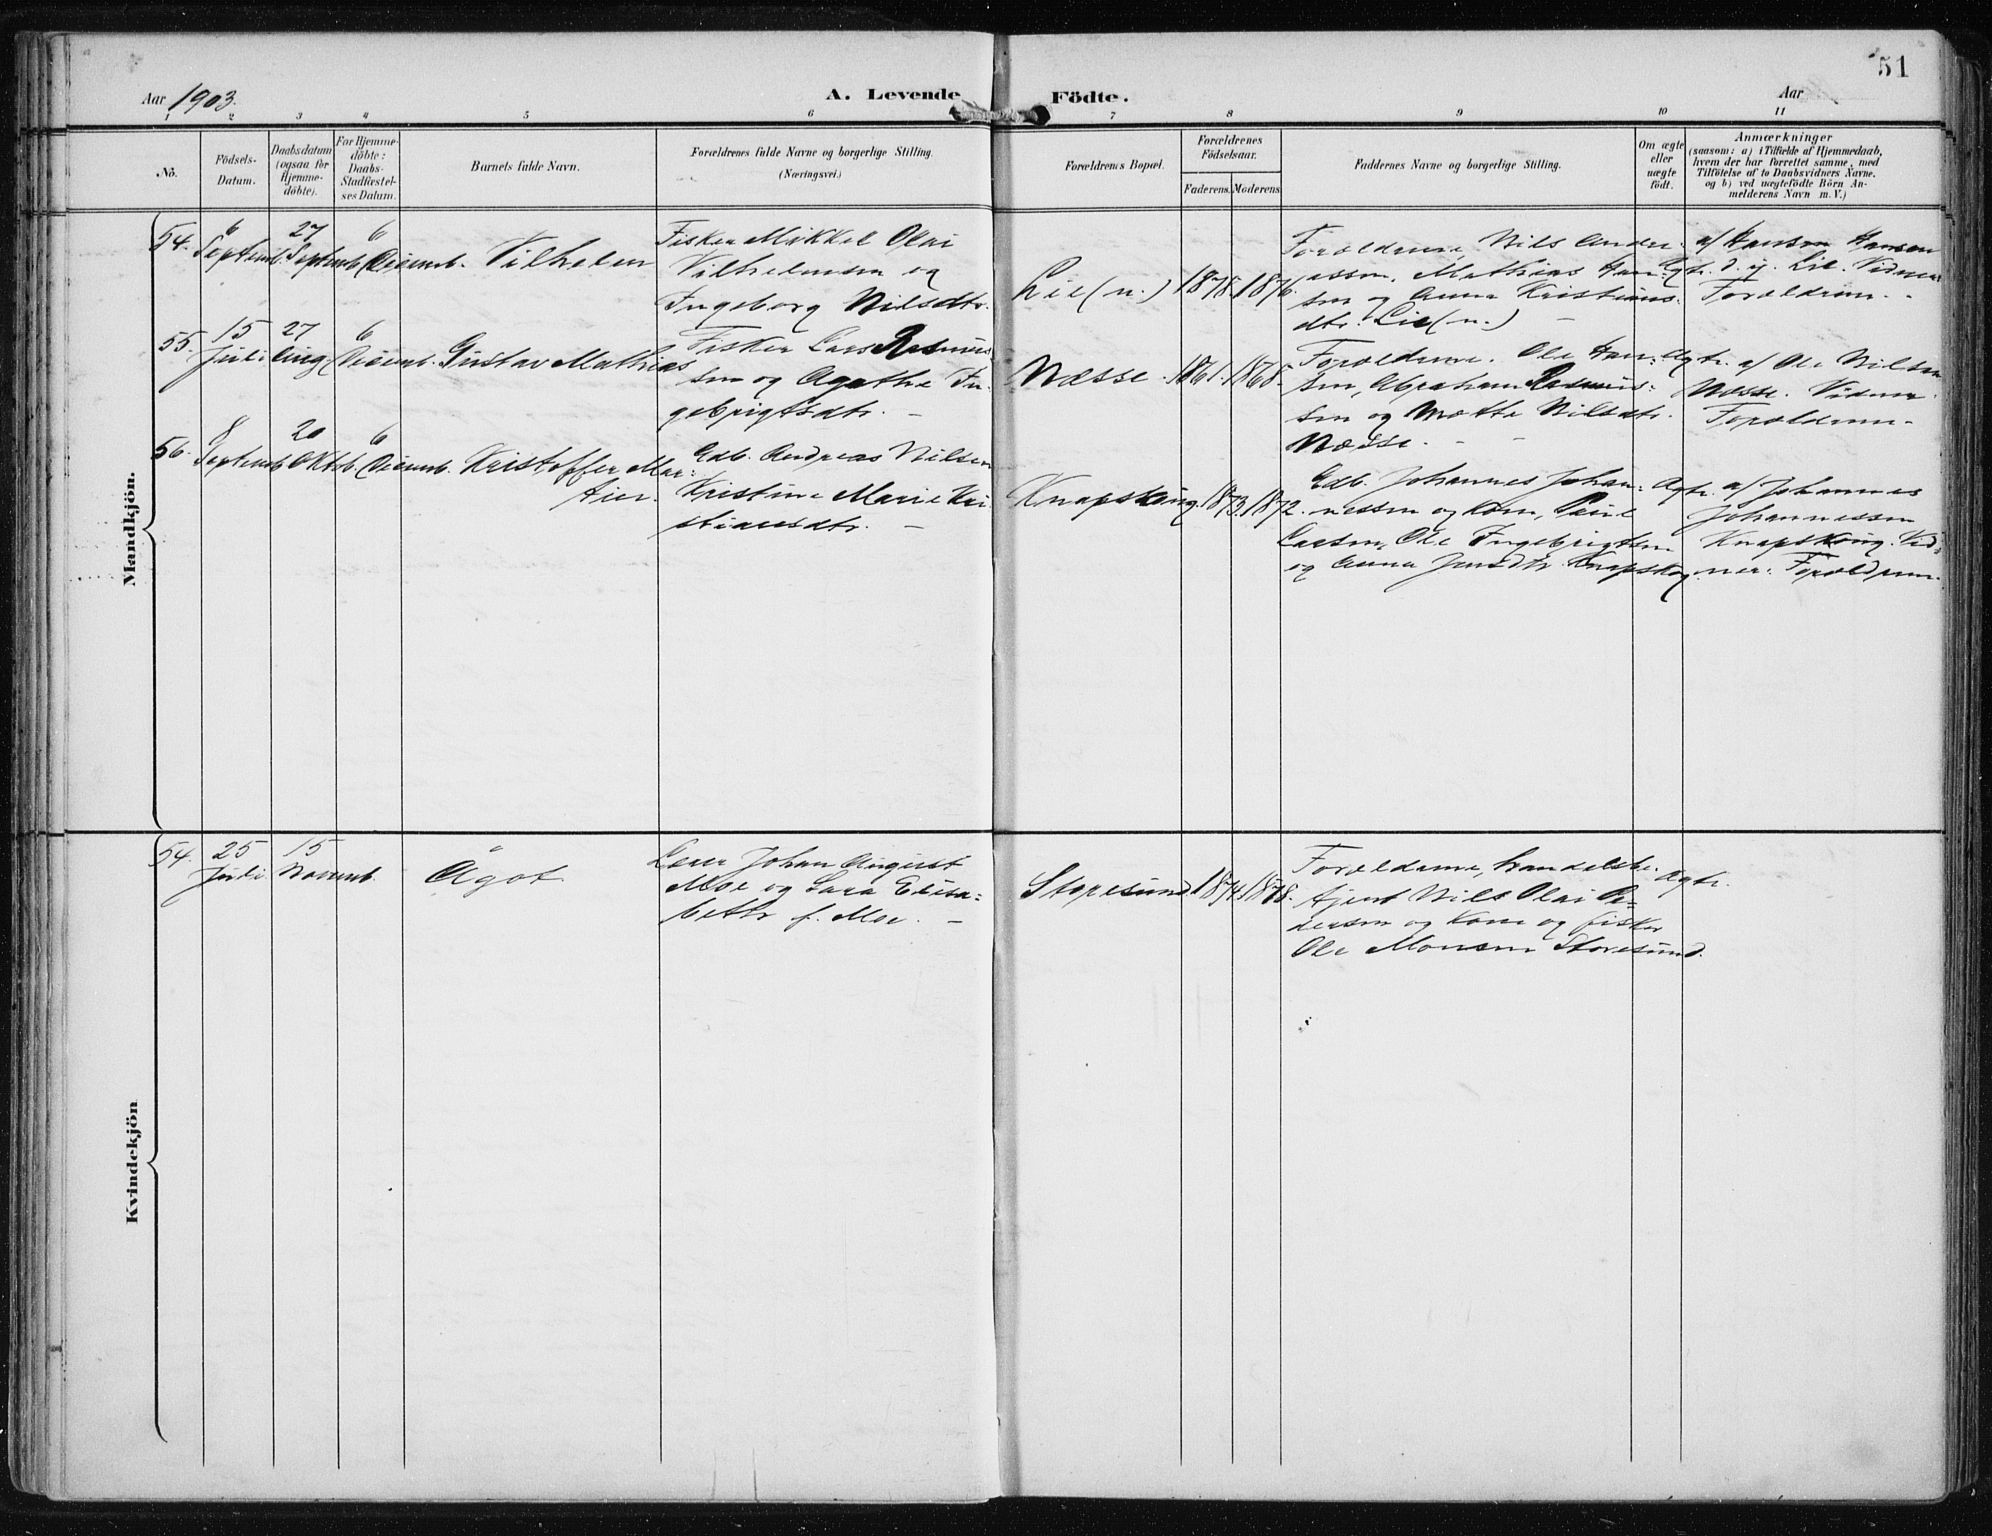 51
Aar 1903.
A. Levende
Födte.
Aar
1 2 3 4 5 6 7 8 9 10 11
No.
Födsels-
Datum.
Daabsdatum
(ogsaa for
Hjemme-
döbte).
For Hjemme-
döbte:
Daabs-
Stadfæstel-
ses Datum.
Barnets fulde Navn.
Forældrenes fulde Navne og borgerlige Stilling.
(Næringsvei.)
Forældrenes Bopæl.
Forældrenes
Födselsaar.
Faderens.
Moderens.
Faddernes Navne og borgerlige Stilling.
Om ægte
eller
uægte
födt.
Anmærkninger
(saasom: a) i Tilfælde af Hjemmedaab,
hvem der har forrettet samme, med
Tilföielse af to Daabsvidners Navne.
og b) ved uægtefödte Börn An-
melderens Navn m. V.)
Mandkjön.
54.
6
Septemb.
27
Septemb.
6
Decemb.
Vilhelm
Fisker Mikkel Olai
Vilhelmsen og
Ingeborg Nilsdtr.
Lie (n.)
1878.
1876.
Foræeldrene, Nils Andre-
assen, Mathias Han-
sen og Anna Kristians-
dtr. Lie (n.) —
Ægte.
a/ Hansen Hansen
d. y. Lie. Vidner
Forældrene.
55.
15
Juli
27
Aug.
6
Decemb.
Gustav Mathias
Fisker Lars Rasmus-
sen og Agathe In-
gebrigtsdtr. —
Næsse.
1861.
1868.
Forældrene. Ole Han-
sen, Abraham Rasmus-
sen og Mette Nilsdtr.
Næsse. — —
Ægte.
a/ Ole Nilsen
Næsse. Vidner.
Forældrene.
56.
8
Septemb.
20
Oktb.
6
Decemb.
Kristoffer Mar-
tier.
Gdb. Andreas Nilsen
Kristine Marie Kri-
stiansdtr. —
Knapskog.
1873.
1872.
Gdb. Johannes Johan-
nessen og Kone, Paul
Larsen, Ole Ingebrigtsen
og Anna Jensdtr. Knapskog.
Ægte.
a/ Johannes
Johannessen
Knapskog. Vid-
ner: Forældrene.
Kvindekjön
54.
25
Juli
15
Novemb.
Ågot
Lærer Johan August
Moe og Sara Elisa-
beth f. Moe. —
Storesund.
1874.
1878.
Forældrene, handelsbe.
Ajent Nils Olai Pe-
dersen og Kone og fisker
Ole Monsen Storesund.
Ægte.